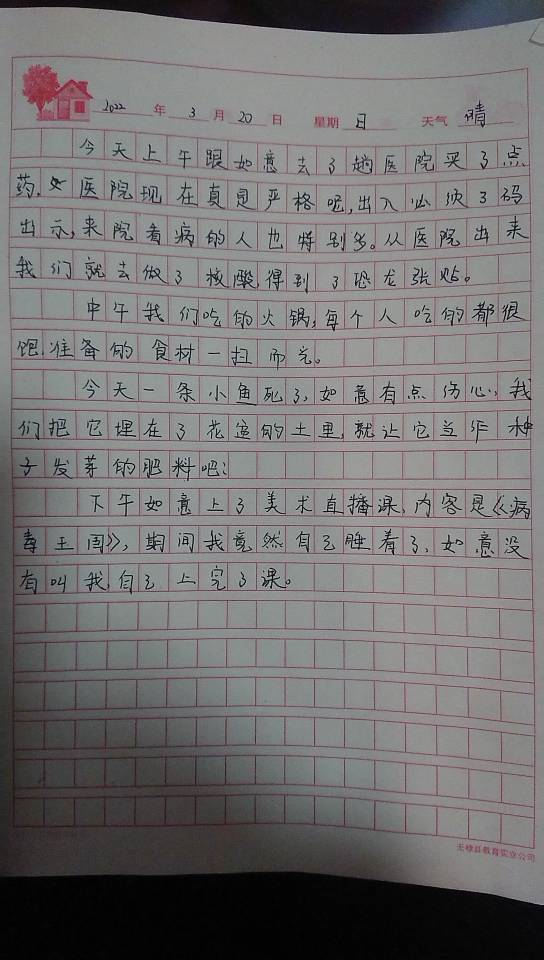 2022 年 3 月 20 日 星期 日 天气 晴
今天上午跟如意去了趟医院买了点
药，医院现在真是严格呢，出入必须了码
出示，来院看病的人也特别多。从医院出来
我们就去做了核酸，得到了恐龙张贴。
中午我们吃的火锅，每个人吃的都很
饱，准备的食材一扫而光。
今天一条小鱼死了，如意有点伤心，我
们把它埋在了花盆的土里，就让它当作种
子发芽的肥料吧！
下午如意上了美术直播课，内容是《病
毒王国》，期间我竟然自己睡着了，如意没
有叫我，自己上完了课。
无棣县教育实业公司